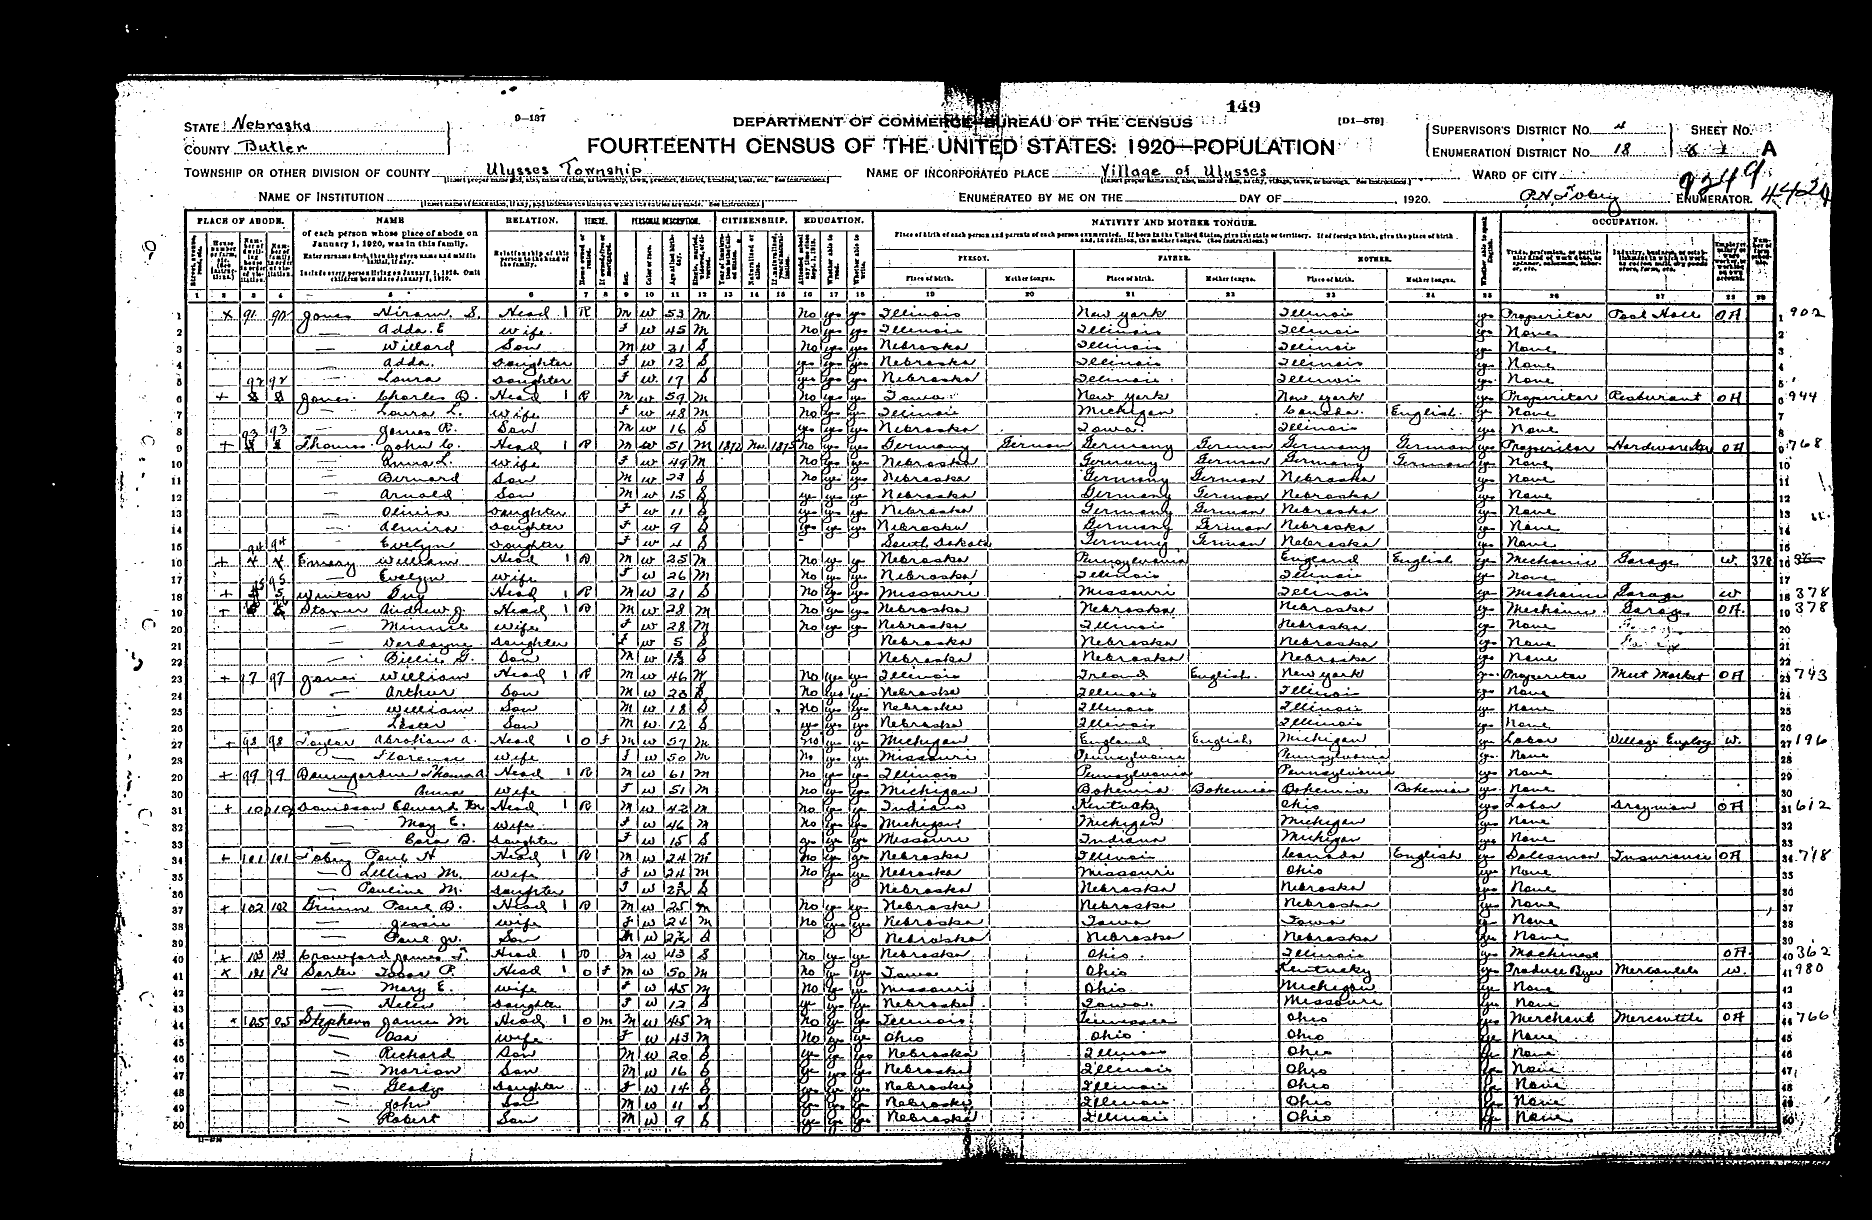 149
STATE Nebraska 9-137 DEPARTMENT OF COMMERCE—BUREAU OF THE CENSUS [D1—578] SUPERVISOR'S DISTRICT NO. 4 SHEET NO.
COUNTY Butler FOURTEENTH CENSUS OF THE UNITED STATES: 1920—POPULATION ENUMERATION DISTRICT NO. 18 A
TOWNSHIP OR OTHER DIVISION OF COUNTY Ulysses Township NAME OF INCORPORATED PLACE Village of Ulysses WARD OF CITY
NAME OF INSTITUTION ENUMERATED BY ME ON THE DAY OF 1920. P.H. Tobey ENUMERATOR.
PLACE OF ABODE. NAME RELATION. TENURE. PERSONAL DESCRIPTION. CITIZENSHIP. EDUCATION. NATIVITY AND MOTHER TONGUE. OCCUPATION.
of each person whose place of abode on January 1, 1920, was in this family.
PERSON. FATHER. MOTHER.
Place of birth. Mother tongue. Place of birth. Mother tongue. Place of birth. Mother tongue.
1 2 3 4 5 6 7 8 9 10 11 12 13 14 15 16 17 18 19 20 21 22 23 24 25 26 27 28 29
1 X 91 Jones Hiram S. Head 1 R M W 53 M No yes yes Illinois New York Illinois yes Propreitor Pool Hall OA 902
2 — Adda. E wife F W 45 M No yes yes Illinois Illinois Illinois yes None
3 — Willard Son M W 21 S No yes yes Nebraska Illinois Illinois yes None
4 — Adda. Daughter F W 12 S yes yes yes Nebraska Illinois Illinois yes None
5 — Laura Daughter F W 17 S yes yes yes Nebraska Illinois Illinois yes None
6 + 92 92 Jones Charles D. Head 1 R M W 59 M No yes yes Iowa New York New York yes Propreitor Resturant OA 944
7 — Laura L. Wife F W 48 M No yes yes Illinois Michigan Canada English yes None
8 — James R. Son M W 16 S yes yes yes Nebraska Iowa Illinois yes None
9 + 93 93 Thomas John C. Head 1 R M W 51 M No yes yes Germany German Germany German Germany German yes Propreitor OA 768
10 — Anna L. Wife F W 49 M No yes yes Nebraska Germany German Germany German yes None
11 — Bernard Son M W 23 S No yes yes Nebraska Germany German Nebraska yes None
12 — Arnold Son M W 15 S yes yes yes Nebraska Germany German Nebraska yes None
13 — Olivia Daughter F W 11 S yes yes yes Nebraska Germany German Nebraska yes None
14 — Almira Daughter F W 9 S yes yes yes Nebraska Germany German Nebraska yes None
15 — Evelyn Daughter F W 4 S South Dakota Germany German Nebraska yes None
16 + 94 94 Emery William Head 1 R M W 25 M No yes yes Nebraska Pennsylvania England English yes Mechanic Garage W.
17 — Evelyn Wife F W 26 M No yes yes Nebraska Illinois Illinois yes None
18 + 95 95 Winton Guy Head 1 R M W 31 S No yes yes Missouri Missouri Illinois yes Mechanic Garage W 378
19 + Stoner Andrew J. Head 1 R M W 28 M No yes yes Nebraska Nebraska Nebraska yes Mechanic Garage OA. 378
20 — Minnie Wife F W 28 M No yes yes Nebraska Illinois Nebraska yes None
21 — Daughter F W 5 S Nebraska Nebraska Nebraska yes None
22 — Billie G. Son M W S Nebraska Nebraska Nebraska yes None
23 + 97 97 Jones William Head 1 R M W 46 No yes yes Illinois Ireland English New York yes Propreitor Meet Market OA 743
24 — Arthur Son M W 20 S No yes yes Nebraska Illinois Illinois yes None
25 William Son M W 18 S No yes yes Nebraska Illinois Illinois yes None
26 Lester Son M W 12 S yes yes yes Nebraska Illinois Illinois yes None
27 + 98 98 Taylor Abraham A. Head 1 O F M W 57 M No yes yes Michigan England English Michigan yes Labor Village Employ W. 196
28 — Florence Wife F W 50 M No yes yes Missouri Pennsylvania Pennsylvania yes None
29 + 99 99 Baumgardner Thomas Head 1 R M W 61 M No yes yes Illinois Pennsylvania Pennsylvania yes None
30 — Anna Wife F W 51 M No yes yes Michigan Bohemia Bohemian Bohemia Bohemian yes None
31 + Davidson Edward Head 1 R M W 42 M No yes yes Indiana Kentucky Ohio yes Labor Drayman OA 612
32 — May E. Wife F W 46 M No yes yes Michigan Michigan Michigan yes None
33 — Cora B. Daughter F W 15 S yes yes yes Missouri Indiana Michigan yes None
34 + 101 101 Tobey Paul H Head 1 R M W 24 M No yes yes Nebraska Illinois Canada English yes Salesman Insurance OA 718
35 — Lillian M. Wife F W 24 M No yes yes Nebraska Missouri Ohio yes None
36 — Pauline M. Daughter F W S Nebraska Nebraska Nebraska yes None
37 + 102 102 Grimm Paul B. Head 1 R M W 25 M No yes yes Nebraska Nebraska Nebraska yes None
38 — Jessie Wife F W 24 M No yes yes Nebraska Iowa Iowa yes None
39 — Paul Jr. Son M W S Nebraska Nebraska Nebraska yes None
40 x 103 103 Crawford James T. Head 1 R M W 43 S No yes yes Nebraska Ohio Illinois yes Machinest OA. 362
41 x Head 1 O F M W 50 M No yes yes Iowa Ohio Kentucky yes Produce Byer Mercantile W. 980
42 — Mary E. Wife F W 45 M No yes yes Missouri Ohio Michigan yes None
43 — Helen Daughter F W 12 S yes yes yes Nebraska Iowa. Missouri yes None
44 x 105 Stephens James M Head 1 O M M W 45 M No yes yes Illinois Tennessee Ohio yes Merchant Mercantile OA 766
45 — Osa Wife F W 43 M No yes yes Ohio Ohio Ohio yes None
46 — Richard Son M W 20 S yes yes yes Nebraska Illinois Ohio yes None
47 — Marion Son M W 16 S yes yes yes Nebraska Illinois Ohio yes None
48 — Gladys Daughter F W 14 S yes yes yes Nebraska Illinois Ohio yes None
49 — John Son M W 11 S yes yes yes Nebraska Illinois Ohio yes None
50 — Robert Son M W 9 S yes yes yes Nebraska Illinois Ohio yes None